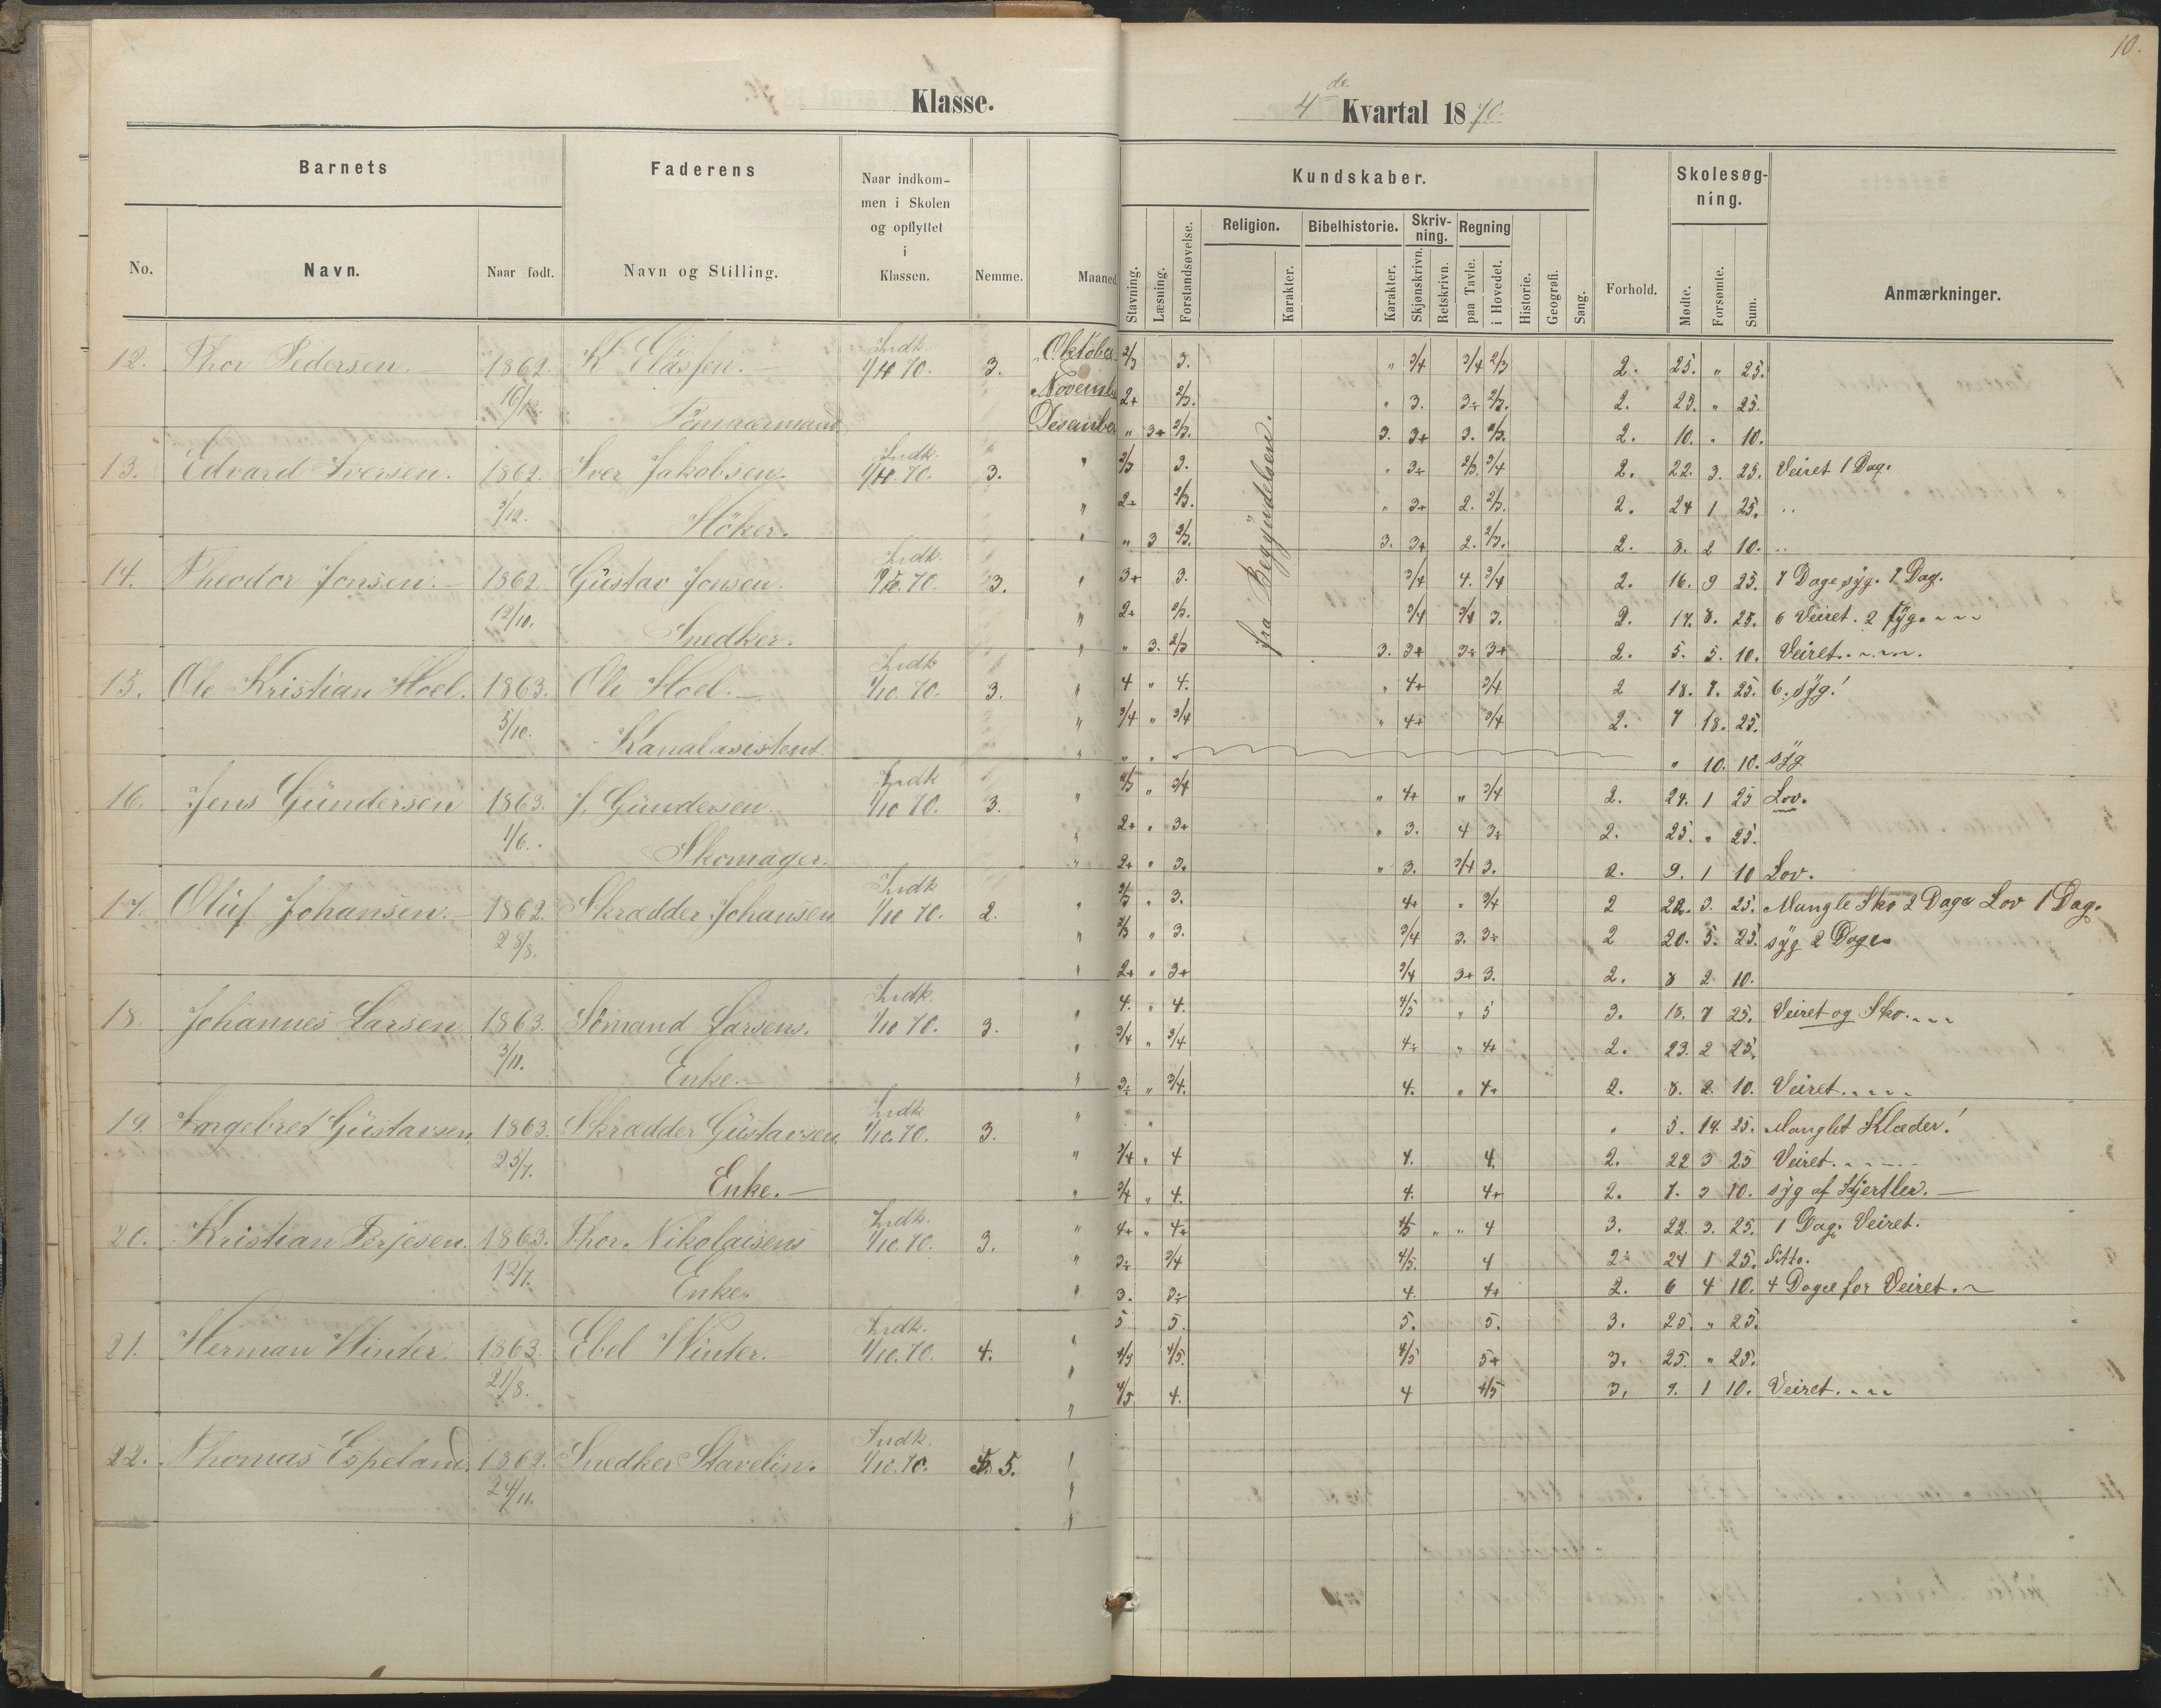 10.
Klasse.
4de Kvartal 1870.
Barnets
Faderens
Naar indkom-
men i Skolen
og opflyttet
i
Klassen.
No.
Navn.
Naar født.
Navn og Stilling.
Nemme.
Maaned
Kundskaber.
Skolesøg-
ning.
Stavning.
Læsning.
Forstandsøvelse.
Religion.
Karakter.
Bibelhistorie.
Karakter.
Skriv-
ning.
Skjønskrivn.
Retskrivn.
Regning
paa Tavle.
i Hovedet.
Historie.
Geografi.
Sang.
Forhold.
Mødte.
Forsømte.
Sum.
Anmærkninger.
fra Begyndelsen.
12. Thor Pedersen. 1862. Indk. 3. Oktober 2/3 3. " 3/4 3/4 2/3 2. 25. " 25.
November 2+ 2/3. " 3. 3÷ 2/3. 2. 25. " 25.
Desember " 3+ 2/3. 3. 3+ 3. 2/3. 2. 10. " 10.
13. Edvard Iversen. 1862. Iver Jakobsen. Indk. 3. " 2/3 3. " 3÷ 2/3. 3/4 2. 22. 3. 25. Veiret 1 Dag.
3/12. Höker. " 2+ 2/3. " 3+ 2. 2/3. 2. 24 1 25. "
" " 3 2/3. 3. 3+ 2. 2/3. 2. 8. 2 10. "
14. Theodor Jonsen. 1862. Gustav Jonsen. Indk. 3. " 3+ 3. 3/4 4. 3/4 2. 16. 9 25. 7 Dage syg. 1 Dag.
12/10. Snedker. " 2÷ 2/3. 3/4 3/4 3. 2. 17. 8. 25. 6 Veiret. 2 syg.
" " 3. 2/3 3. 3+ 3÷ 3+ 2. 5. 5. 10. Veiret.
15. Ole Kristian Hoel. 1863. Ole Hoel. Indk 1/10. 70. 3. " 4 " 4. " 4+ 3/4 2 18. 7. 25. 6. syg!
5/10. Kanalasistent. " 3/4 " 3/4 " 4+ 3/4 2. 7 18. 25.
" " " " " 10. 10. syg
16. Jens Gundersen 1863. J. Gundersen. Indk 1/10 70. 3. " 2/3 " 3/4 " 4+ " 3/4 2. 24. 1 25 Lov.
1/6. Skomager. " 2+ " 3+ " 3. 4 3÷ 2. 25. " 25.
" 2+ " 3. " 3. 3/4 3. 2. 9. 1 10 Lov.
17. Oluf Johansen. 1862. Skrædder Johansen Indk 1/10 70. 2. " 2/3 " 3. 4+ " 3/4 2 22. 3. 25. Mangle Sko 2 Dage Lov 1 Dag.
28/8. " 2/3 " 3. 3/4 3. 3÷ 2 20. 5. 25. syg 2 Dage
" 2+ " 3+ 3/4 3+ 3. 2. 8 2 10.
18. Johannes Larsen 1863. Sömand Larsens. Indk. 1/10 70. 3. " 4. " 4. 4/5 " 5 3. 18. 7 25. Veiret og Sko.
3/11. Enke. " 3/4 " 3/4 4÷ " 4+ 2. 23. 2 25.
" 3÷ " 3/4. 4. " 4+ 2. 8. 2 10. Veiret.
19. Ingebret Gustavsen 1863. Skrædder Gustavsen Indk 1/10. 70. 3. " " " 19. 25. Manglet Klæder!
25/7. Enke. " 3/4 " 4 4. 4. 2. 22 3 25 Veiret.
" 3/4 " 4. 4. 4+ 2. 7. 3 10. syg af Kjertler.
20. Kristian Terjesen. 1863. Thor Nikolaisens Indk. 1/10. 70. 3. " 4+ " 4+ 4/5 " " 4 3. 22. 3. 25. 1 Dag. Veiret.
12/7. Enke. " 3÷ 3/4 4/5. 4 2÷ 24 1 25. Ditto.
" 3. 3÷ 4. 4+ 2. 6 4 10. 4 Dage for Veiret.
21. Herman Winter. 1863. Ebel Winter. Indk. 1/10. 70. 4. " 5 5. 5. 5. 3. 25. " 25.
21/8. " 4/5 4/5. 4/5 5+ 3. 25. " 25.
" 4/5 4. 4 4/5 3. 9. 1 10. Veiret.
22. Thomas Espeland. 1862. Snedker Stavelin. Indk. 1/10. 70. 5. "
24/11. "
"